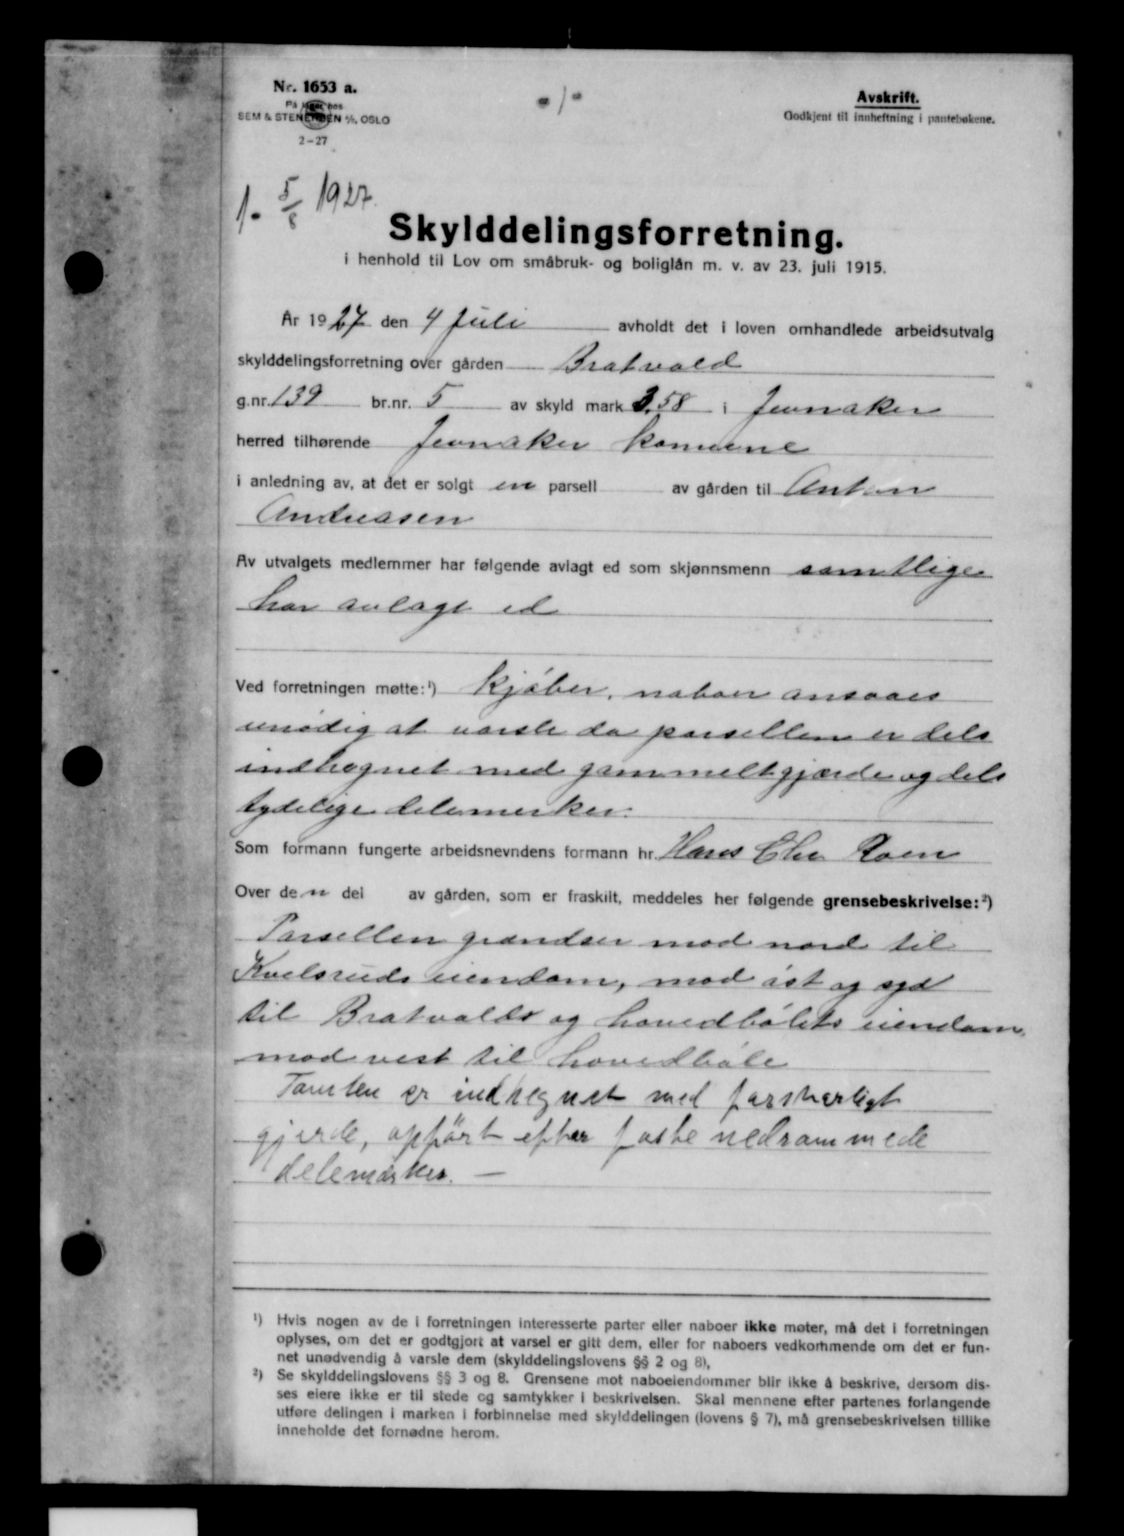 Nr. 1653 a.
På lager hos
SEM & STENERSEN A/S, OSLO
2-27
- 1 -
Avskrift.
Godkjent til innheftning i pantebøkene.
1. 5/8 1927.
Skylddelingsforretning.
i henhold til Lov om småbruk- og boliglån m. v. av 23. juli 1915.
År 1927 den 4 Juli avholdt det i loven omhandlede arbeidsutvalg
skylddelingsforretning over gården Bratvald
g.nr. 139 br.nr. 5 av skyld mark 3.58 i Jevnaker
herred tilhørende Jevnaker komune
i anledning av, at det er solgt en parsell av gården til Anton
Andreasen
Av utvalgets medlemmer har følgende avlagt ed som skjønnsmenn samtlige
har avlagt ed
Ved forretningen møtte:¹) Kjøber, naboer ansaaes
unødig at varsle da parsellen er dels
indhegnet med gammelt gjærde og dels
tydelige delemerker.
Som formann fungerte arbeidsnevndens formann hr. Hans Chr. Roen
Over den del av gården, som er fraskilt, meddeles her følgende grensebeskrivelse:²)
Parsellen grændser mod nord til
Kvelsruds eiendom, mod øst og syd
til Bratvalds og hovedbølets eiendom,
mod vest til hovedbøle
Tomten er indhegnet med forsvarligt
gjerde, opført efter faste nedrammede
delemerker. —
¹) Hvis nogen av de i forretningen interesserte parter eller naboer ikke møter, må det i forretningen
oplyses, om det er godtgjort at varsel er gitt dem, eller for naboers vedkommende om det er fun-
net unødvendig å varsle dem (skylddelingslovens §§ 2 og 8),
²) Se skylddelingslovens §§ 3 og 8. Grensene mot naboeiendommer blir ikke å beskrive, dersom dis-
ses eiere ikke er til stede og samtykker i beskrivelsen. Skal mennene efter partenes forlangende
utføre delingen i marken i forbinnelse med skylddelingen (lovens § 7), må grensebeskrivelsen tillike
inneholde det fornødne herom.